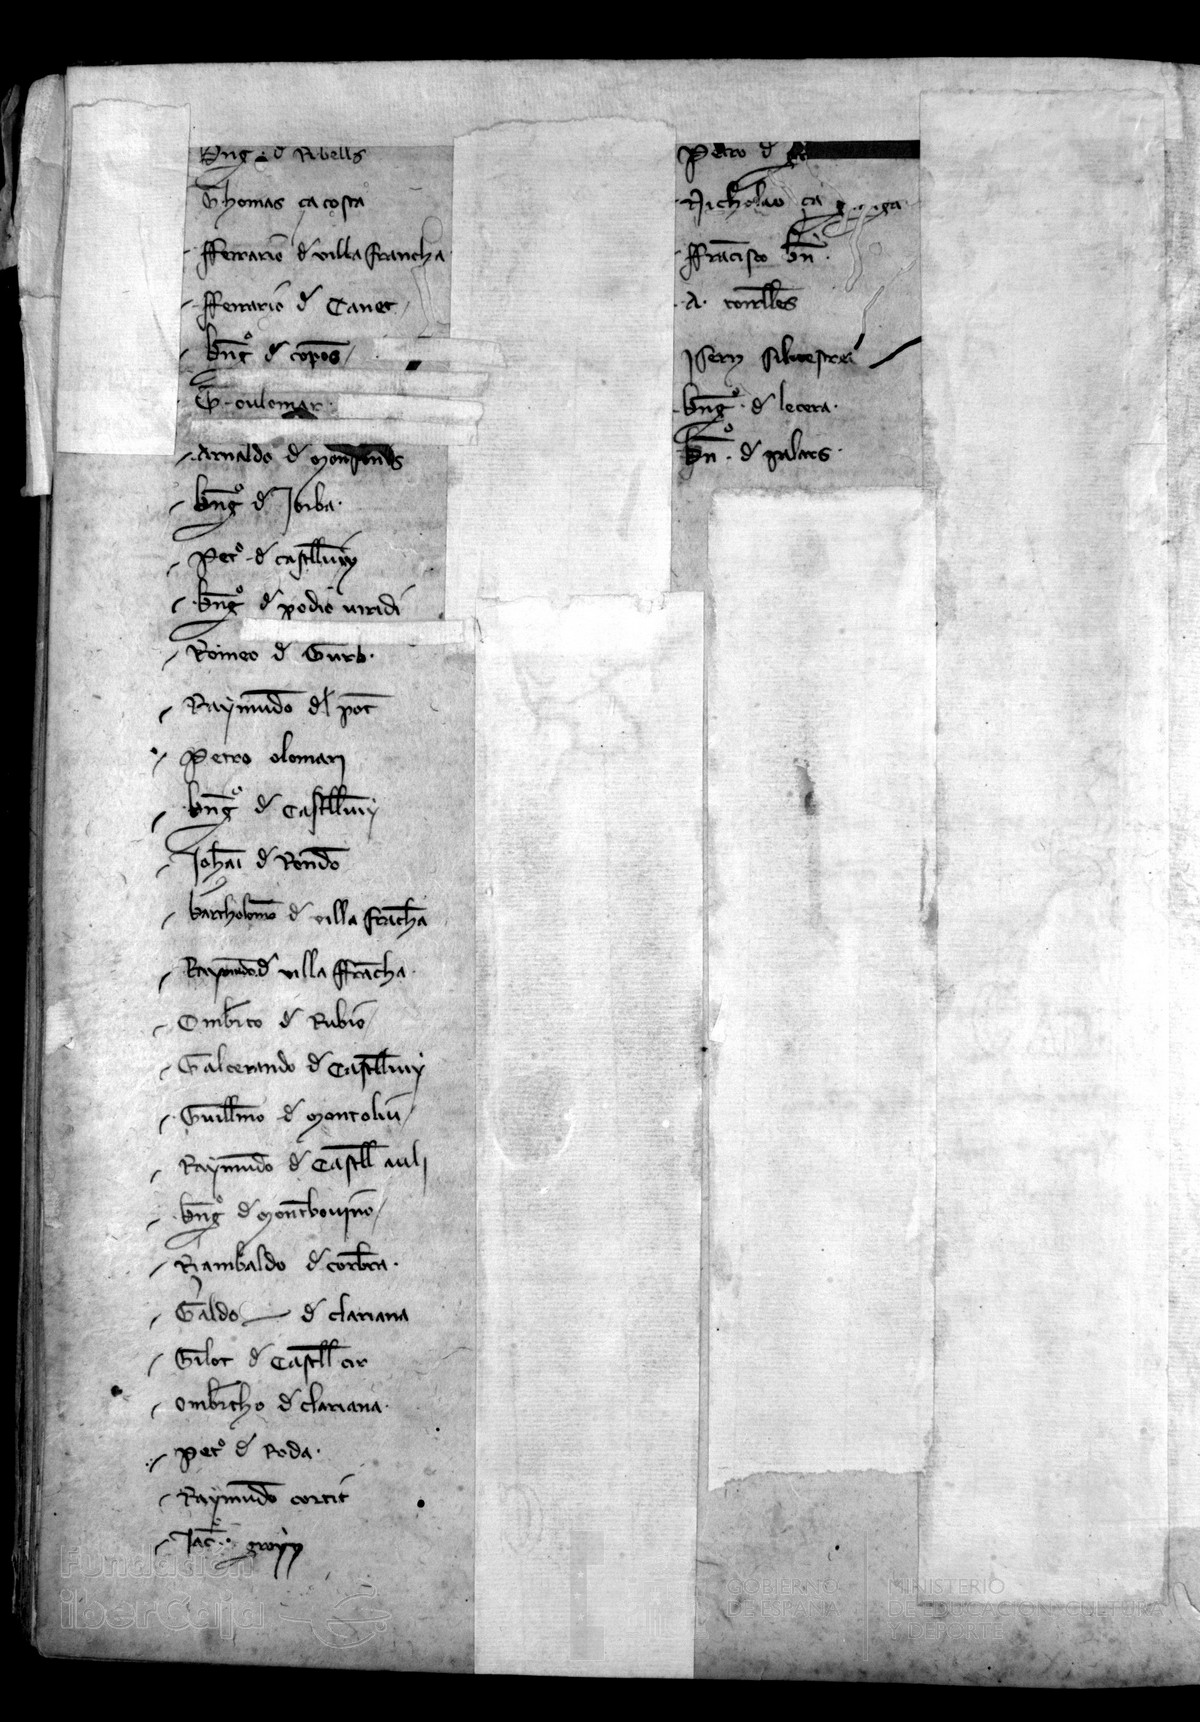 Bng d Ribells
Thomas ça costa
fferrario d villa francha
fferrario d Canet
bngo d copos
G. oulomar
Arnaldo d monsonis
bngo d Jorba
Peto d castllvuy
bngo d podio viridi
Romeo d Gurb
Raymundo dl pot
Petro olomari
bngo d Castllvuy
Johai d Rendo
bartholomo d villa francha
Raymundo d villa ffrancha
Ombto d Rubio
Galcerando d Castllvuy
Guillmo d montoliu
Raymundo d Castll auli
bngo d
Riambaldo d corbra
Galdo d clariana
Gilot d Castll
Ombtho d clariana
Peto d Roda
Raymundo cortit
Jac
Petro d
Nicholao ça
ffracisco bn
A.
silvestre
bngo d lecera
bno d palars
Fundación
iberCaja
GOBIERNO
DE ESPAÑA
MINISTERIO
DE EDUCACIÓN, CULTURA
Y DEPORTE